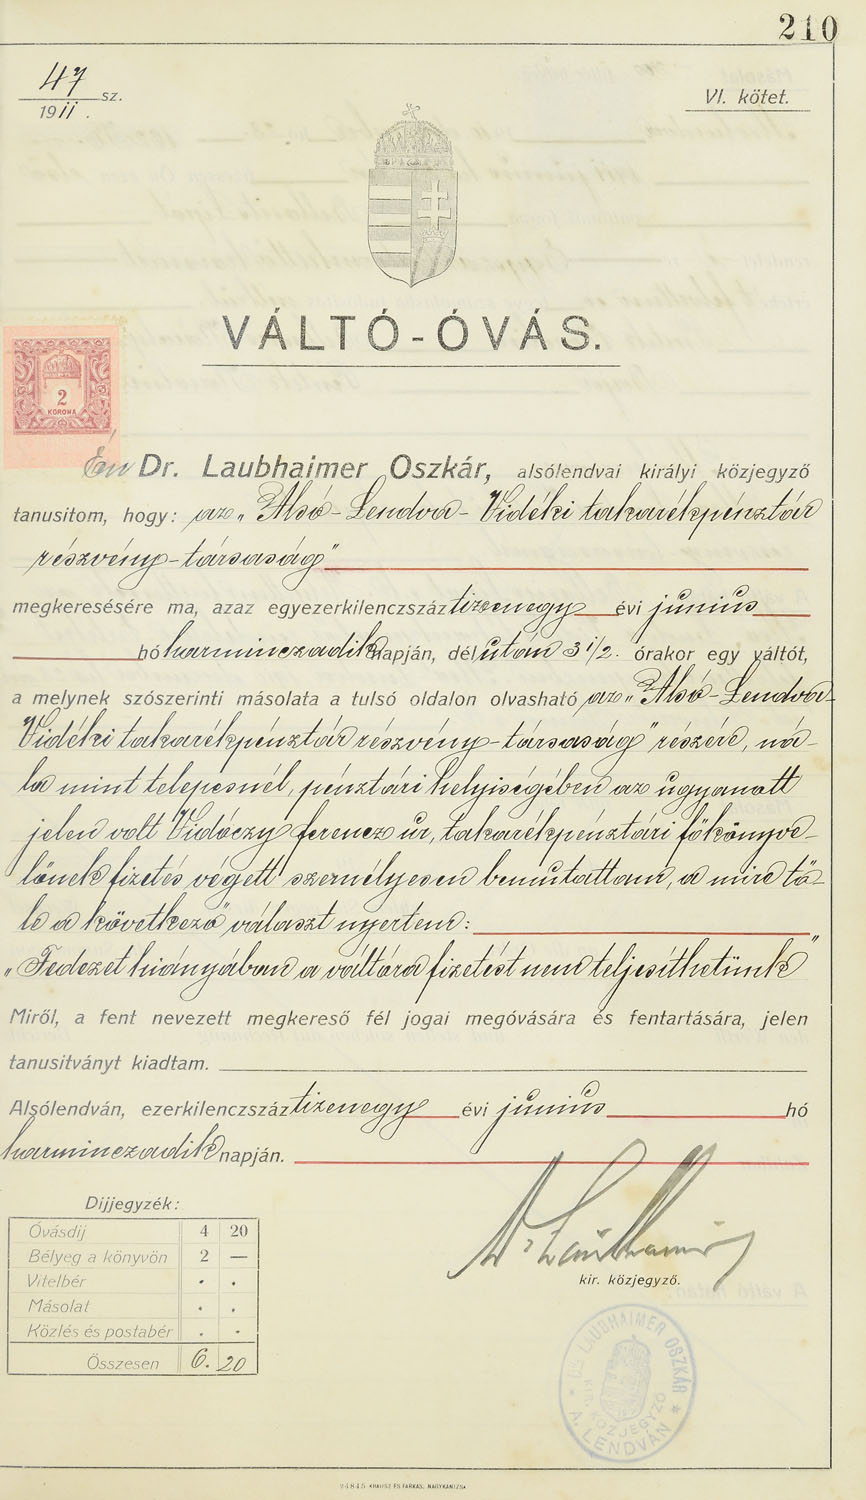 210
47 sz.
1911.
VI. kötet.
VÁLTÓ-ÓVÁS.
2
KORONA
Én Dr. Laubhaimer Oszkár, alsólendvai királyi közjegyző
tanusitom, hogy: az „Alsó-Lendva-Vidéki takarékpénztár
részvény-társaság"
megkeresésére ma, azaz egyezerkilenczszáz tizenegy évi junius
hó harminczadik napján, dél után 3 1/2. órakor egy váltót,
a melynek szószerinti másolata a tulsó oldalon olvasható az „Alsó-Lendva-
Vidéki takarékpénztár részvény-társaság" részére, ná-
la mint telepesnél, pénztári helyiségében az ugyanott
jelen volt Vidóczy Ferencz ur, takarékpénztári főkönyve-
lőnek fizetés végett személyesen bemutattam, a mire tő-
le a következő választ nyertem:
„Fedezet hiányában a váltóra fizetést nem teljesíthetünk"
Miről, a fent nevezett megkereső fél jogai megóvására és fentartására, jelen
tanusitványt kiadtam.
Alsólendván, ezerkilenczszáz tizenegy évi junius hó
harminczadik napján.
Díjjegyzék:
Óvásdij 4 20
Bélyeg a könyvön 2 —
Vitelbér . .
Másolat . .
Közlés és postabér . .
Összesen 6. 20
Dr Laubhaimer
kir. közjegyző.
DR. LAUBHAIMER OSZKÁR
KIR. KÖZJEGYZŐ
A. LENDVÁN
24845 KRAUSZ ÉS FARKAS, NAGYKANIZSA